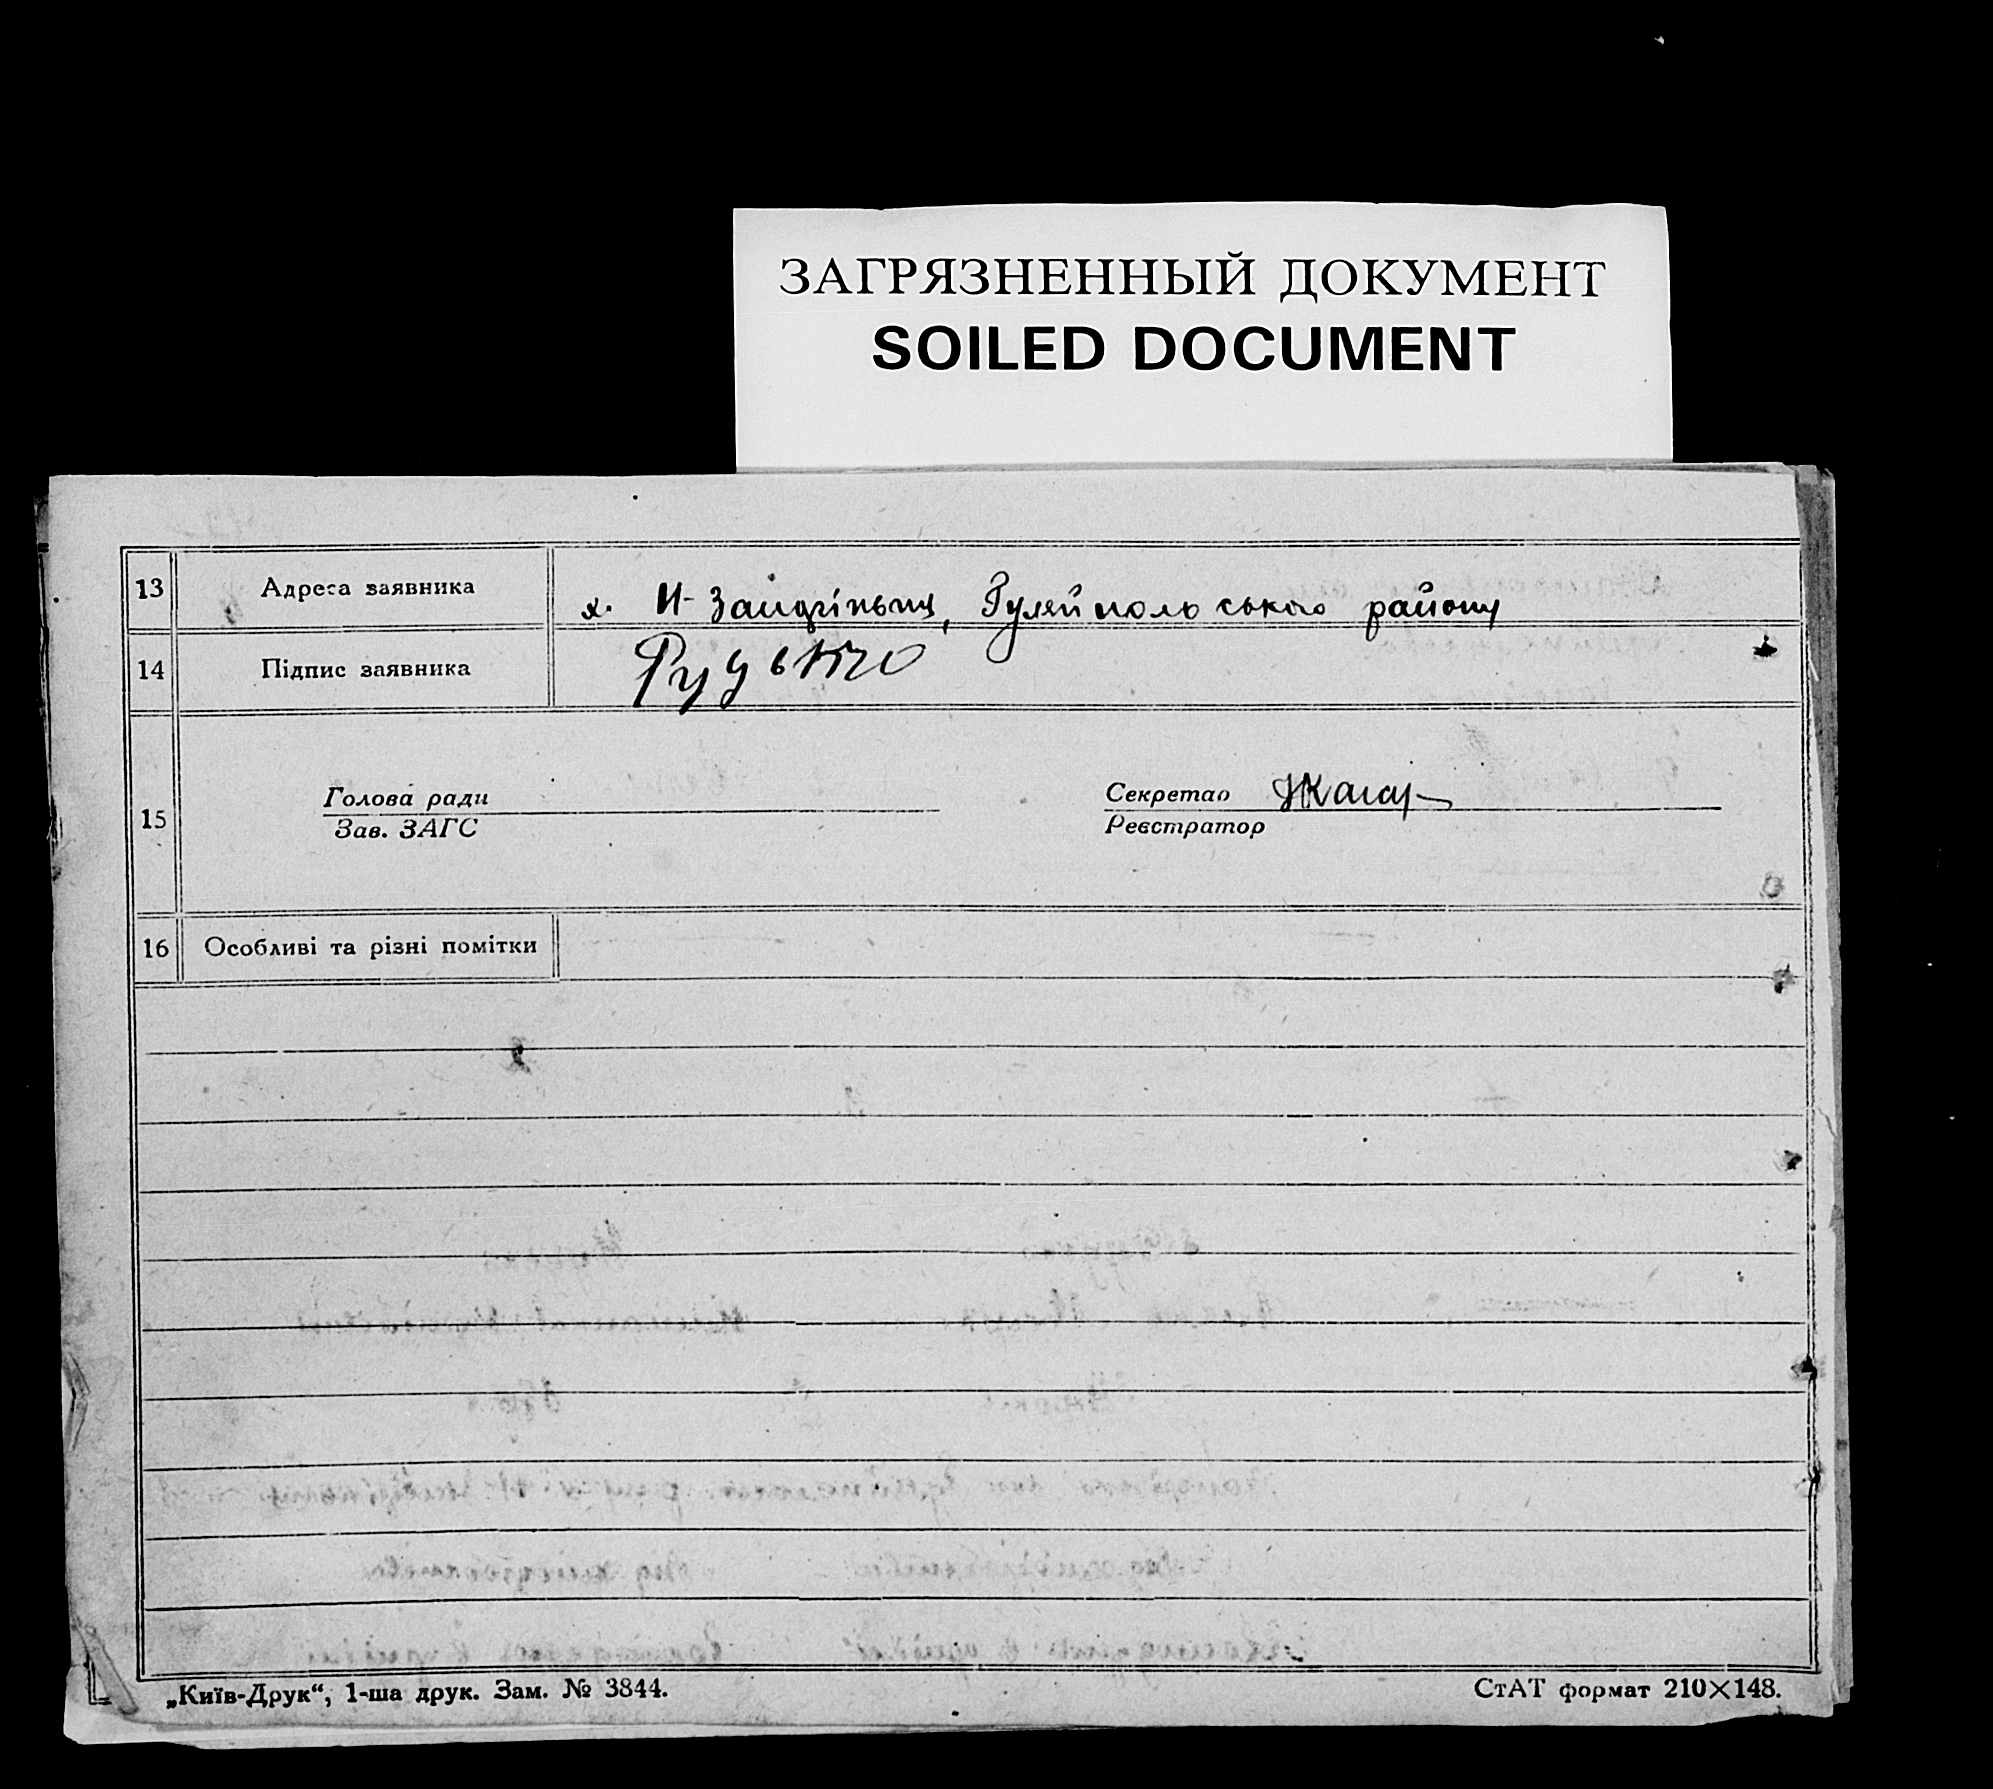 ЗАГРЯЗНЕННЫЙ ДОКУМЕНТ
SOILED DOCUMENT
13 Адреса заявника Гуляйпольського району
14 Підпис заявника Рудько
15 Голова ради Секретар
Зав. ЗАГС Реєстратор
16 Особливі та різні помітки
„Київ-Друк“, 1-ша друк. Зам. № 3844. СтАТ формат 210×148.